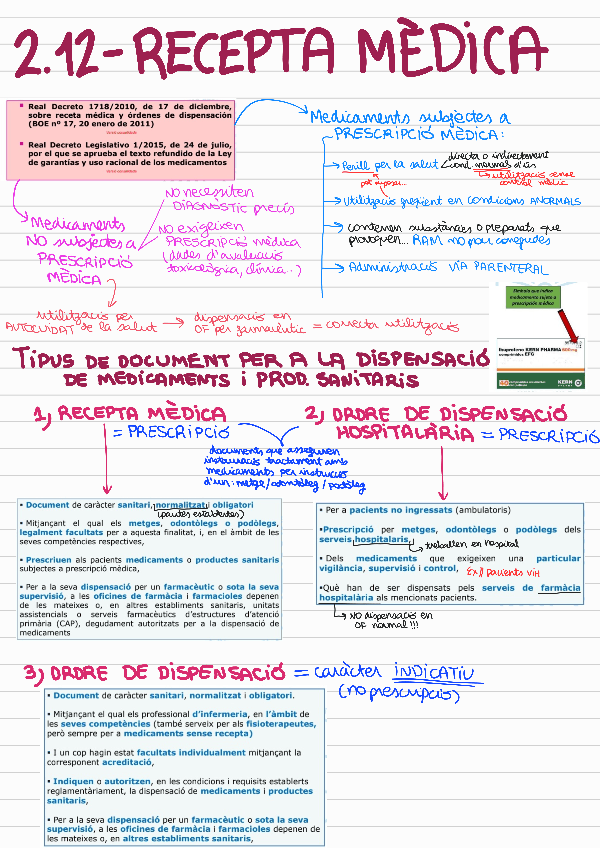 2.12- RECEPTA MÈDICA
▪ Real Decreto 1718/2010, de 17 de diciembre,
sobre receta médica y órdenes de dispensación
(BOE nº 17, 20 enero de 2011)
▪ Real Decreto Legislativo 1/2015, de 24 de julio,
por el que se aprueba el texto refundido de la Ley
de garantías y uso racional de los medicamentos
Medicaments subjectes a
PRESCRIPCIÓ MÈDICA:
Perill per la salut
directa o indirectament
cond. normal d'ús
utilització sense
control mèdic
pot suposar...
Utilització freqüent en condicions ANORMALS
contenen substàncies o preparats que
provoquen... RAM no prou conegudes
Administració VÍA PARENTERAL
Medicaments
NO subjectes a
PRESCRIPCIÓ
MÈDICA
NO necessiten
DIAGNÒSTIC precís
NO exigeixen
PRESCRIPCIÓ mèdica
(dades d'avaluació
toxicològica, clínica..)
utilització per
AUTOCUIDAT de la salut → dispensació en
OF per farmacèutic = correcta utilització
Símbolo que indica
medicamento sujeto a
prescripción médica
Ibuprofeno KERN PHARMA 600mg
comprimidos EFG
40
KERN
TIPUS DE DOCUMENT PER A LA DISPENSACIÓ
DE MEDICAMENTS i PROD. SANITARIS
1) RECEPTA MÈDICA
= PRESCRIPCIÓ
2) ORDRE DE DISPENSACIÓ
HOSPITALÀRIA = PRESCRIPCIÓ
documents que asseguren
instauració tractament amb
medicaments per instrucció
d'un: metge/odontòleg/podòleg
▪ Document de caràcter sanitari, normalitzat i obligatori
(pautes establertes)
▪ Mitjançant el qual els metges, odontòlegs o podòlegs,
legalment facultats per a aquesta finalitat, i, en el àmbit de les
seves competències respectives,
▪ Prescriuen als pacients medicaments o productes sanitaris
subjectes a prescripció mèdica,
▪ Per a la seva dispensació per un farmacèutic o sota la seva
supervisió, a les oficines de farmàcia i farmacioles depenen
de les mateixes o, en altres establiments sanitaris, unitats
assistencials o serveis farmacèutics d'estructures d'atenció
primària (CAP), degudament autoritzats per a la dispensació de
medicaments
▪ Per a pacients no ingressats (ambulatoris)
▪Prescripció per metges, odontòlegs o podòlegs dels
serveis hospitalaris,
treballen en hospital
▪ Dels medicaments que exigeixen una particular
vigilància, supervisió i control,
Ex// pacients VIH
▪Què han de ser dispensats pels serveis de farmàcia
hospitalària als mencionats pacients.
NO dispensació en
OF normal!!!
3) ORDRE DE DISPENSACIÓ = caràcter INDICATIU
(no prescripció)
▪ Document de caràcter sanitari, normalitzat i obligatori.
▪ Mitjançant el qual els professional d'infermeria, en l'àmbit de
les seves competències (també serveix per als fisioterapeutes,
però sempre per a medicaments sense recepta)
▪ I un cop hagin estat facultats individualment mitjançant la
corresponent acreditació,
▪ Indiquen o autoritzen, en les condicions i requisits establerts
reglamentàriament, la dispensació de medicaments i productes
sanitaris,
▪ Per a la seva dispensació per un farmacèutic o sota la seva
supervisió, a les oficines de farmàcia i farmacioles depenen de
les mateixes o, en altres establiments sanitaris,